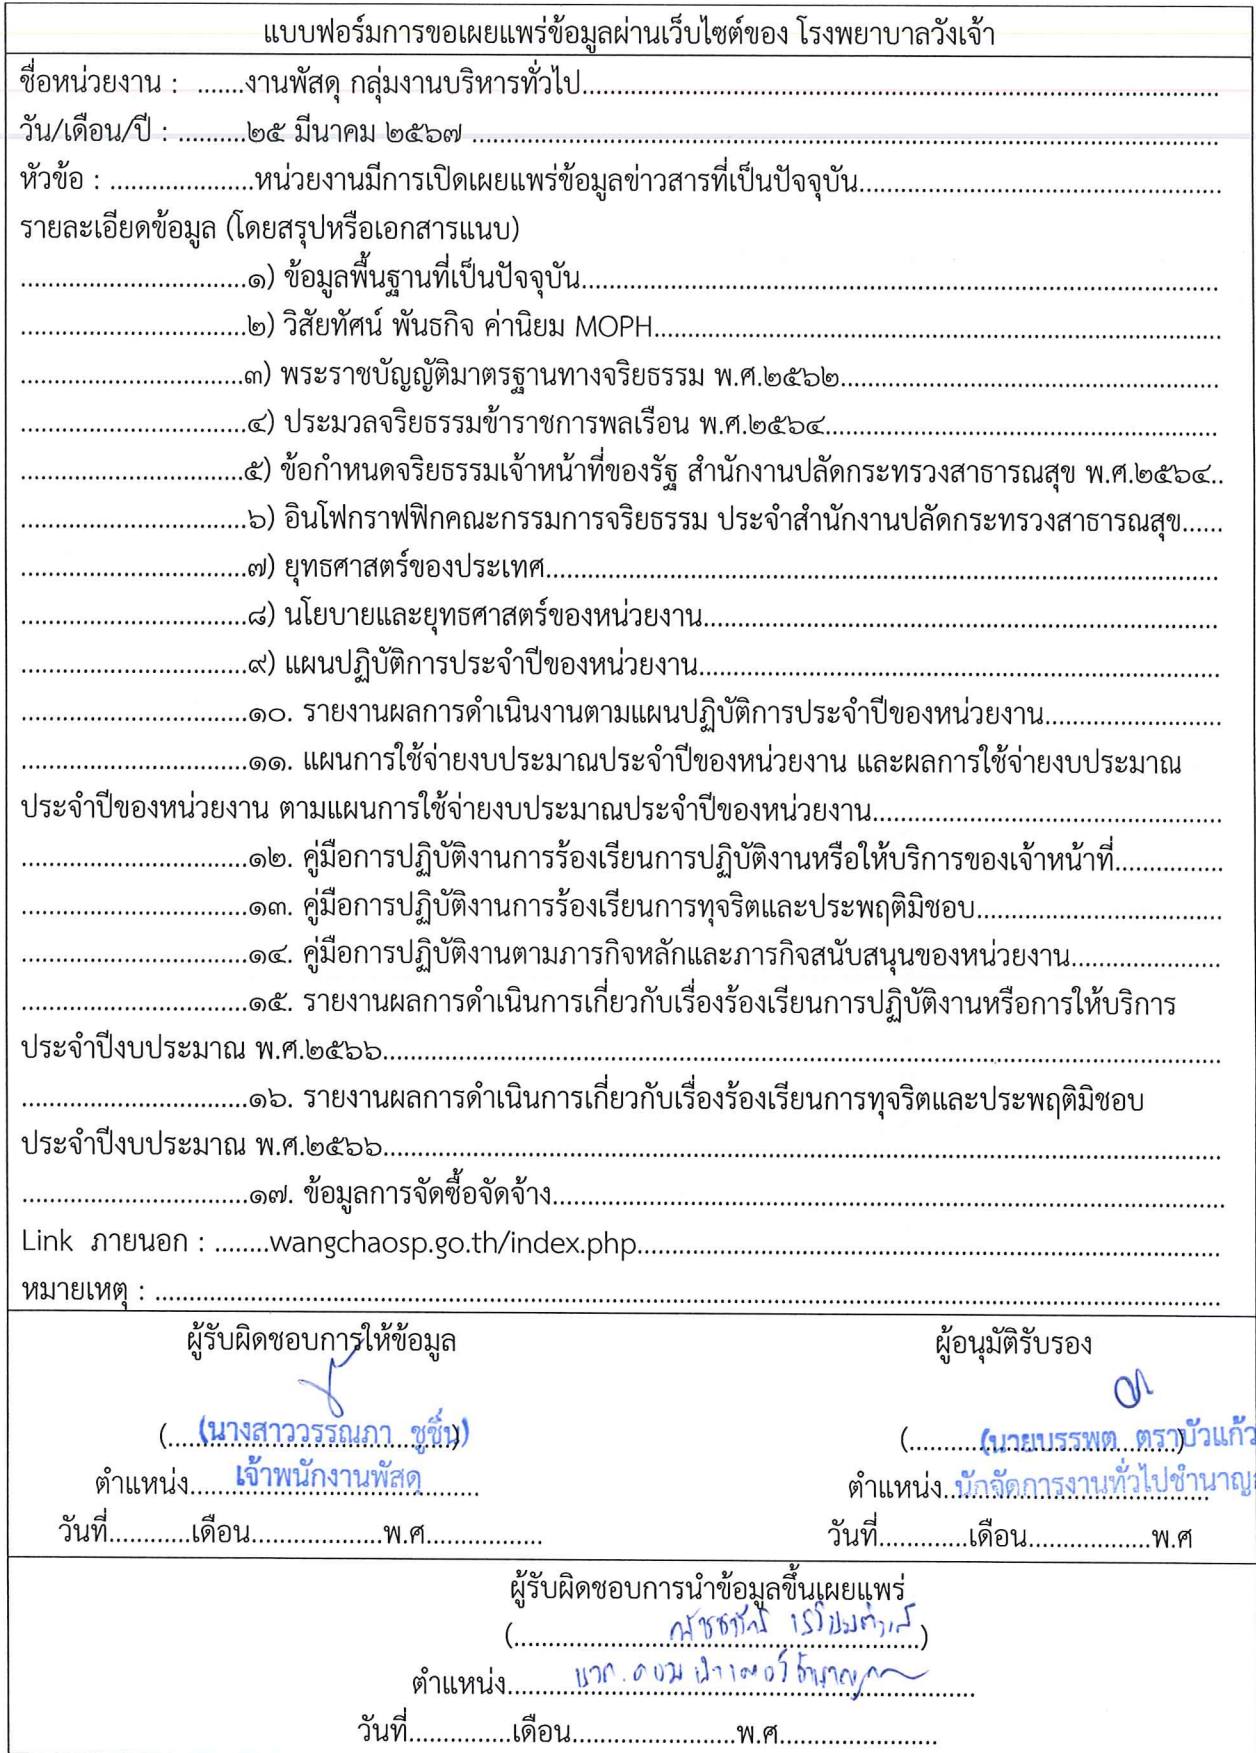 แบบฟอร์มการขอเผยแพร่ข้อมูลผ่านเว็บไซต์ของ โรงพยาบาลวังเจ้า
ชื่อหน่วยงาน : .......งานพัสดุ กลุ่มงานบริหารทั่วไป.......
วัน/เดือน/ปี : ..........๒๕ มีนาคม ๒๕๖๗ ..........
หัวข้อ : .....................หน่วยงานมีการเปิดเผยแพร่ข้อมูลข่าวสารที่เป็นปัจจุบัน..........
รายละเอียดข้อมูล (โดยสรุปหรือเอกสารแนบ)
.................................๑) ข้อมูลพื้นฐานที่เป็นปัจจุบัน..........
.................................๒) วิสัยทัศน์ พันธกิจ ค่านิยม MOPH..........
.................................๓) พระราชบัญญัติมาตรฐานทางจริยธรรม พ.ศ.๒๕๖๒..........
.................................๔) ประมวลจริยธรรมข้าราชการพลเรือน พ.ศ.๒๕๖๔..........
.................................๕) ข้อกำหนดจริยธรรมเจ้าหน้าที่ของรัฐ สำนักงานปลัดกระทรวงสาธารณสุข พ.ศ.๒๕๖๔..
.................................๖) อินโฟกราฟฟิกคณะกรรมการจริยธรรม ประจำสำนักงานปลัดกระทรวงสาธารณสุข......
.................................๗) ยุทธศาสตร์ของประเทศ..........
.................................๘) นโยบายและยุทธศาสตร์ของหน่วยงาน..........
.................................๙) แผนปฏิบัติการประจำปีของหน่วยงาน..........
.................................๑๐. รายงานผลการดำเนินงานตามแผนปฏิบัติการประจำปีของหน่วยงาน..........
.................................๑๑. แผนการใช้จ่ายงบประมาณประจำปีของหน่วยงาน และผลการใช้จ่ายงบประมาณ
ประจำปีของหน่วยงาน ตามแผนการใช้จ่ายงบประมาณประจำปีของหน่วยงาน..........
.................................๑๒. คู่มือการปฏิบัติงานการร้องเรียนการปฏิบัติงานหรือให้บริการของเจ้าหน้าที่..........
.................................๑๓. คู่มือการปฏิบัติงานการร้องเรียนการทุจริตและประพฤติมิชอบ..........
.................................๑๔. คู่มือการปฏิบัติงานตามภารกิจหลักและภารกิจสนับสนุนของหน่วยงาน..........
.................................๑๕. รายงานผลการดำเนินการเกี่ยวกับเรื่องร้องเรียนการปฏิบัติงานหรือการให้บริการ
ประจำปีงบประมาณ พ.ศ.๒๕๖๖..........
.................................๑๖. รายงานผลการดำเนินการเกี่ยวกับเรื่องร้องเรียนการทุจริตและประพฤติมิชอบ
ประจำปีงบประมาณ พ.ศ.๒๕๖๖..........
.................................๑๗. ข้อมูลการจัดซื้อจัดจ้าง..........
Link ภายนอก : ........wangchaosp.go.th/index.php..........
หมายเหตุ : ..........
ผู้รับผิดชอบการให้ข้อมูล ผู้อนุมัติรับรอง
(....(นางสาววรรณภา ชูชื่น) (..........(นายบรรพต ตราบัวแก้ว
ตำแหน่ง......เจ้าพนักงานพัสดุ ตำแหน่ง..นักจัดการงานทั่วไปชำนาญ
วันที่............เดือน...................พ.ศ................. วันที่.............เดือน..................พ.ศ
ผู้รับผิดชอบการนำข้อมูลขึ้นเผยแพร่
(..........)
ตำแหน่ง..........
วันที่...............เดือน........................พ.ศ...........................